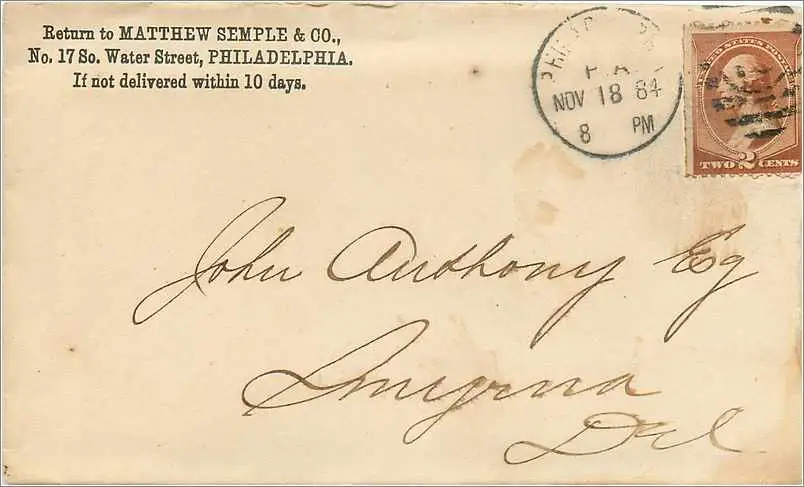 Return to MATTHEW SEMPLE & CO.,
No. 17 So. Water Street, PHILADELPHIA.
If not delivered within 10 days.
PHILAD
PA
NOV 18 84
8 PM
UNITED STATES POSTAGE
TWO 2 CENTS
John Anthony Eq
Smyrna
Del